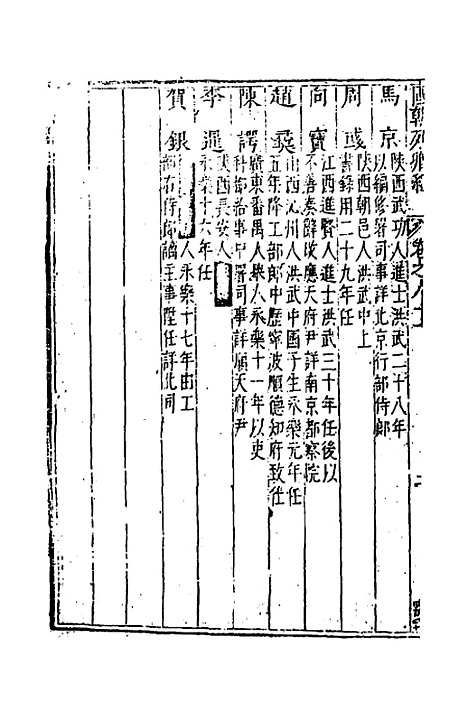 國朝列卿紀 卷之八十
馬京 陝西武功人進士洪武二十八年
以編修署司事詳北京行部侍郎
周彧 陝西朝邑人洪武中上
書錄用二十九年任
向寶 江西進賢人進士洪武三十年任後以
不善奏辭改應天府尹詳南京都察院
趙 山西沁州人洪武中國子生永樂元年任
五年降工部郎中歷寧波順德知府致仕
陳諤 廣東番禺人舉人永樂十一年以吏
科給事中署司事詳順天府尹
李暹 陝西長安人
永樂十六年任
賀銀 人永樂十七年由工
部右侍郎謫主事陞任詳北司